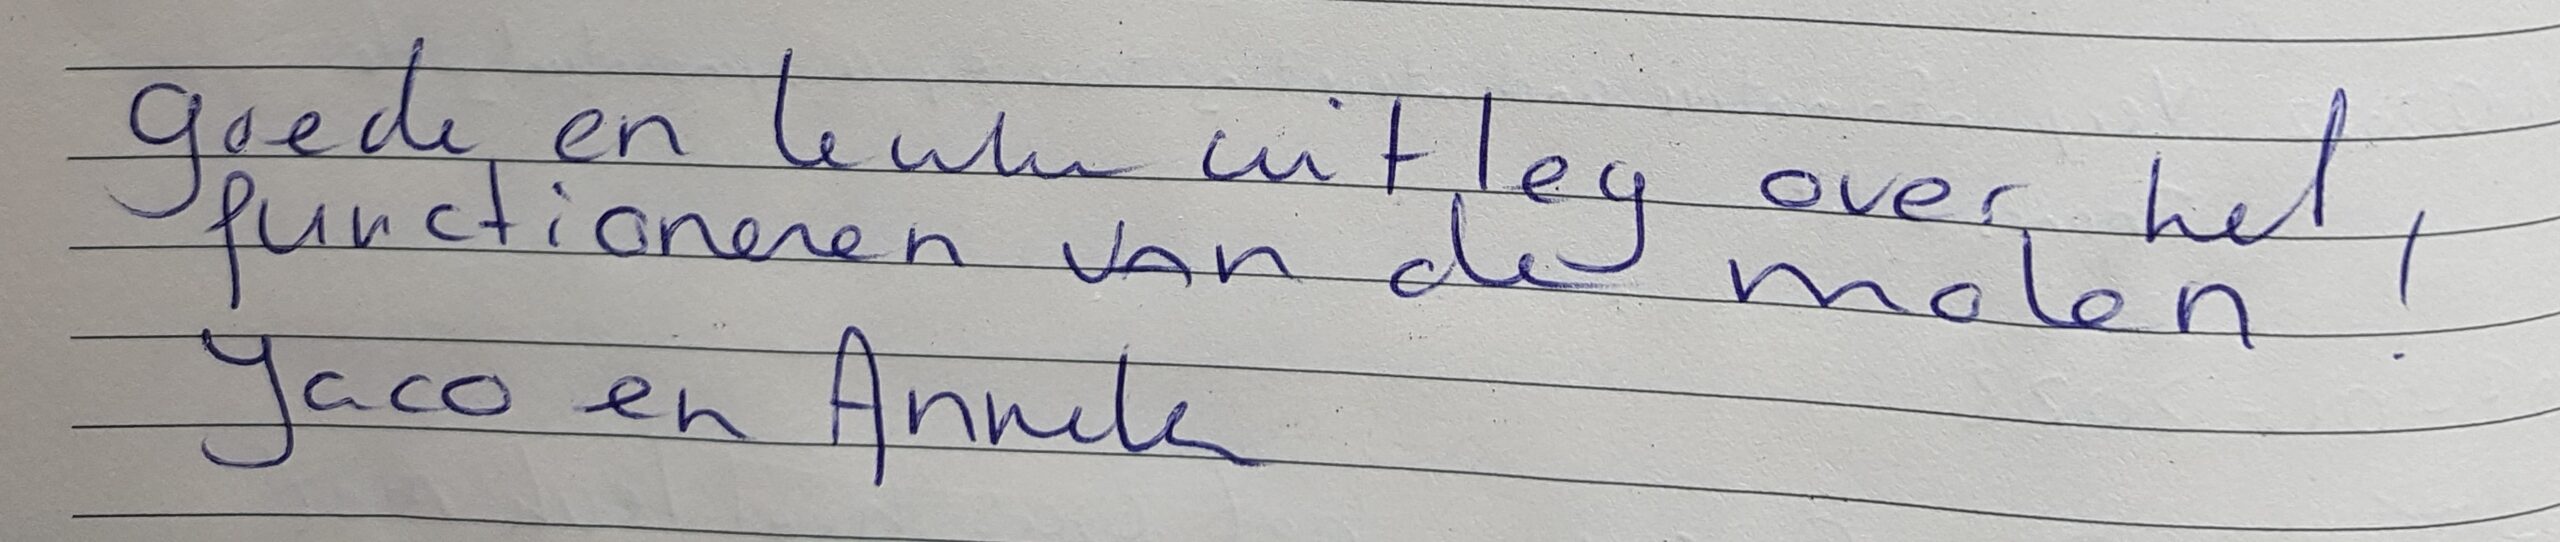 goede en leuke uitleg over het
functioneren van de molen!
Jaco en